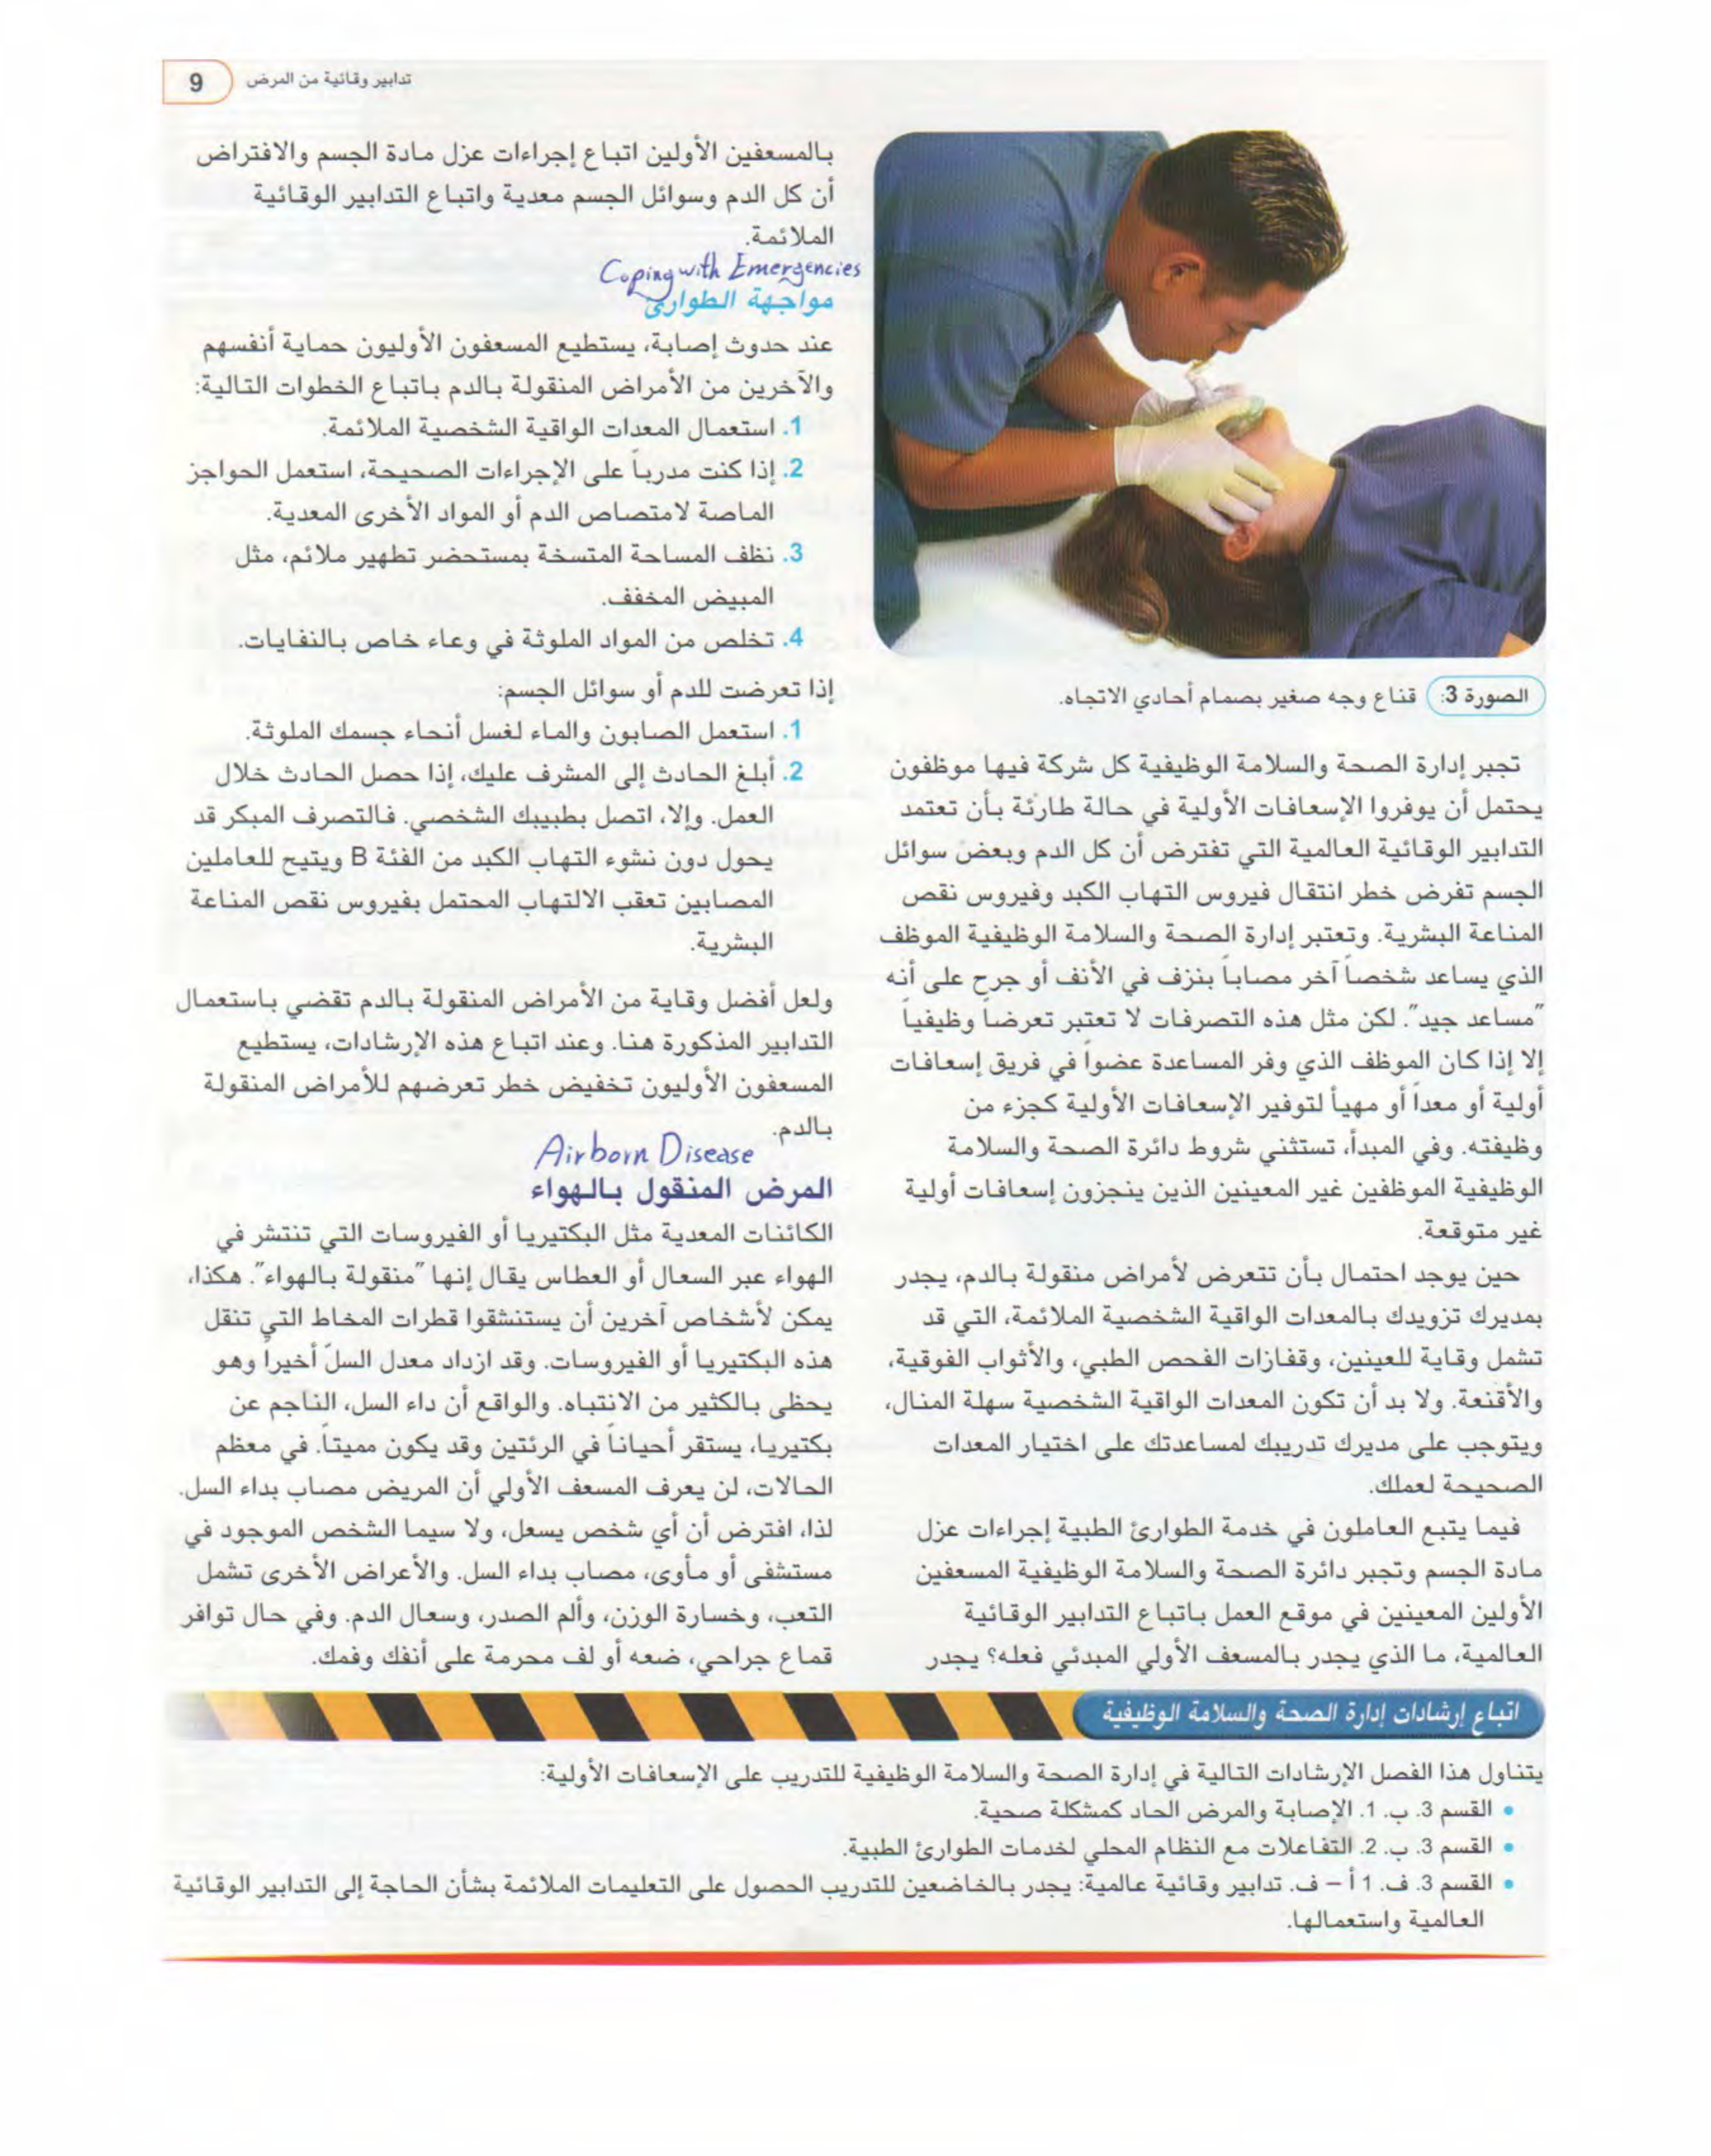 تدابير وقائية من المرض 9
الصورة 3: قناع وجه صغير بصمام أحادي الاتجاه.
تجبر إدارة الصحة والسلامة الوظيفية كل شركة فيها موظفون
يحتمل أن يوفروا الإسعافات الأولية في حالة طارئة بأن تعتمد
التدابير الوقائية العالمية التي تفترض أن كل الدم وبعض سوائل
الجسم تفرض خطر انتقال فيروس التهاب الكبد وفيروس نقص
المناعة البشرية. وتعتبر إدارة الصحة والسلامة الوظيفية الموظف
الذي يساعد شخصاً آخر مصاباً بنزف في الأنف أو جرح على أنه
"مساعد جيد". لكن مثل هذه التصرفات لا تعتبر تعرضاً وظيفياً
إلا إذا كان الموظف الذي وفر المساعدة عضواً في فريق إسعافات
أولية أو معداً أو مهيأ لتوفير الإسعافات الأولية كجزء من
وظيفته. وفي المبدأ، تستثني شروط دائرة الصحة والسلامة
الوظيفية الموظفين غير المعينين الذين ينجزون إسعافات أولية
غير متوقعة.
حين يوجد احتمال بأن تتعرض لأمراض منقولة بالدم، يجدر
بمديرك تزويدك بالمعدات الواقية الشخصية الملائمة، التي قد
تشمل وقاية للعينين، وقفازات الفحص الطبي، والأثواب الفوقية،
والأقنعة. ولا بد أن تكون المعدات الواقية الشخصية سهلة المنال،
ويتوجب على مديرك تدريبك لمساعدتك على اختيار المعدات
الصحيحة لعملك.
فيما يتبع العاملون في خدمة الطوارئ الطبية إجراءات عزل
مادة الجسم وتجبر دائرة الصحة والسلامة الوظيفية المسعفين
الأولين المعينين في موقع العمل باتباع التدابير الوقائية
العالمية، ما الذي يجدر بالمسعف الأولي المبدئي فعله؟ يجدر
بالمسعفين الأولين اتباع إجراءات عزل مادة الجسم والافتراض
أن كل الدم وسوائل الجسم معدية واتباع التدابير الوقائية
الملائمة.
Coping with Emergencies
مواجهة الطوارئ
عند حدوث إصابة، يستطيع المسعفون الأوليون حماية أنفسهم
والآخرين من الأمراض المنقولة بالدم باتباع الخطوات التالية:
1. استعمال المعدات الواقية الشخصية الملائمة.
2. إذا كنت مدرباً على الإجراءات الصحيحة، استعمل الحواجز
الماصة لامتصاص الدم أو المواد الأخرى المعدية.
3. نظف المساحة المتسخة بمستحضر تطهير ملائم، مثل
المبيض المخفف.
4. تخلص من المواد الملوثة في وعاء خاص بالنفايات.
إذا تعرضت للدم أو سوائل الجسم:
1. استعمل الصابون والماء لغسل أنحاء جسمك الملوثة.
2. أبلغ الحادث إلى المشرف عليك، إذا حصل الحادث خلال
العمل. وإلا، اتصل بطبيبك الشخصي. فالتصرف المبكر قد
يحول دون نشوء التهاب الكبد من الفئة B ويتيح للعاملين
المصابين تعقب الالتهاب المحتمل بفيروس نقص المناعة
البشرية.
ولعل أفضل وقاية من الأمراض المنقولة بالدم تقضي باستعمال
التدابير المذكورة هنا. وعند اتباع هذه الإرشادات، يستطيع
المسعفون الأوليون تخفيض خطر تعرضهم للأمراض المنقولة
بالدم.
Airborn Disease
المرض المنقول بالهواء
الكائنات المعدية مثل البكتيريا أو الفيروسات التي تنتشر في
الهواء عبر السعال أو العطاس يقال إنها "منقولة بالهواء". هكذا،
يمكن لأشخاص آخرين أن يستنشقوا قطرات المخاط التي تنقل
هذه البكتيريا أو الفيروسات. وقد ازداد معدل السلّ أخيراً وهو
يحظى بالكثير من الانتباه. والواقع أن داء السل، الناجم عن
بكتيريا، يستقر أحياناً في الرئتين وقد يكون مميتاً. في معظم
الحالات، لن يعرف المسعف الأولي أن المريض مصاب بداء السل.
لذا، افترض أن أي شخص يسعل، ولا سيما الشخص الموجود في
مستشفى أو مأوى، مصاب بداء السل. والأعراض الأخرى تشمل
التعب، وخسارة الوزن، وألم الصدر، وسعال الدم. وفي حال توافر
قماع جراحي، ضعه أو لف محرمة على أنفك وفمك.
اتباع إرشادات إدارة الصحة والسلامة الوظيفية
يتناول هذا الفصل الإرشادات التالية في إدارة الصحة والسلامة الوظيفية للتدريب على الإسعافات الأولية:
• القسم 3. ب. 1. الإصابة والمرض الحاد كمشكلة صحية.
• القسم 3. ب. 2. التفاعلات مع النظام المحلي لخدمات الطوارئ الطبية.
• القسم 3. ف. 1 أ – ف. تدابير وقائية عالمية: يجدر بالخاضعين للتدريب الحصول على التعليمات الملائمة بشأن الحاجة إلى التدابير الوقائية
العالمية واستعمالها.